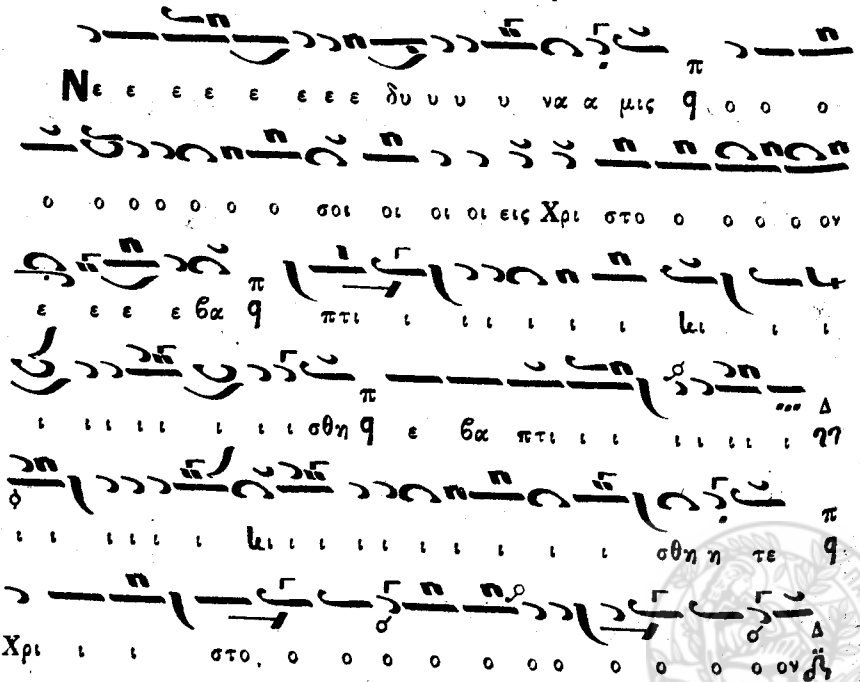 Νε ε ε ε ε ε ε ε δυ υ υ υ να α μις π q ο ο ο
ο ο ο ο ο ο ο σοι οι οι οι εις Χρι στο ο ο ο ο ον
ε ε ε ε βα π q πτι ι ι ι ι ι ι κι ι ι
ι ι ι ι ι ι ι ι σθη π q ε βα πτι ι ι ι ι ι ι ι Δ
ι ι ι ι ι ι κι ι ι ι ι ι ι ι ι ι ι ι σθη η τε π q
Χρι ι ι στο ο ο ο ο ο ο ο ο ο ο ο ον Δ